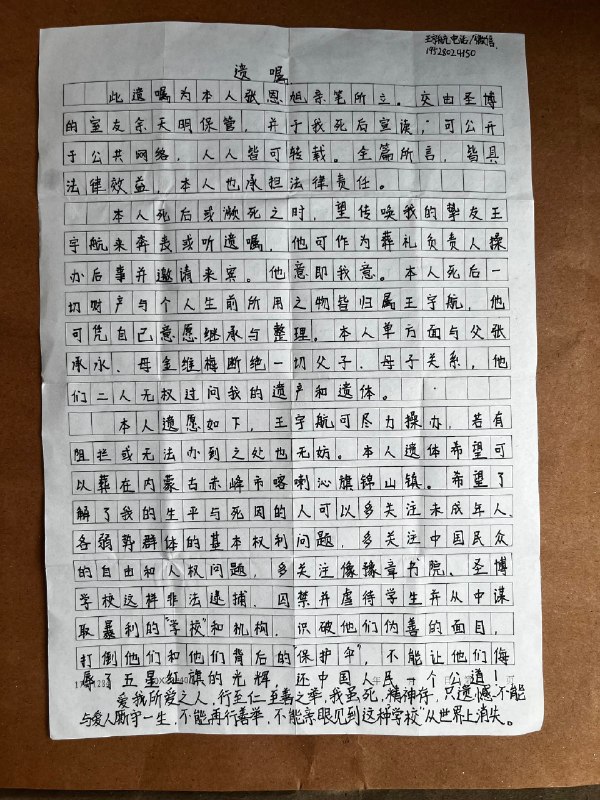 王宇航电话/微信
19528024150
遗嘱
此遗嘱为本人张恩旭亲笔所立。交由圣博
的室友余天明保管,并于我死后宣读,可公开
于公共网络,人人皆可转载。全篇所言,皆具
法律效益,本人也承担法律责任。
本人死后或濒死之时,望传唤我的挚友王
宇航来奔丧或听遗嘱,他可作为葬礼负责人操
办后事并邀请来宾。他意即我意。本人死后一
切财产与个人生前所用之物皆归属王宇航,他
可凭自己意愿继承与整理。本人单方面与父张
承永、母金维梅断绝一切父子、母子关系,他
们二人无权过问我的遗产和遗体。
本人遗愿如下,王宇航可尽力操办,若有
阻拦或无法办到之处也无妨。本人遗体希望可
以葬在内蒙古赤峰市喀喇沁旗锦山镇。希望了
解了我的生平与死因的人可以多关注未成年人、
各弱势群体的基本权利问题,多关注中国民众
的自由和人权问题,多关注像豫章书院、圣博
学校这样非法逮捕、囚禁并虐待学生并从中谋
取暴利的“学校”和机构,识破他们伪善的面目,
打倒他们和他们背后的“保护伞”,不能让他们侮
辱了五星红旗的光辉,还中国人民一个公道!
爱我所爱之人,行至仁至善之举,我虽死,精神存,只遗憾不能
与爱人厮守一生,不能再行善举,不能亲眼见到这种“学校”从世界上消失。